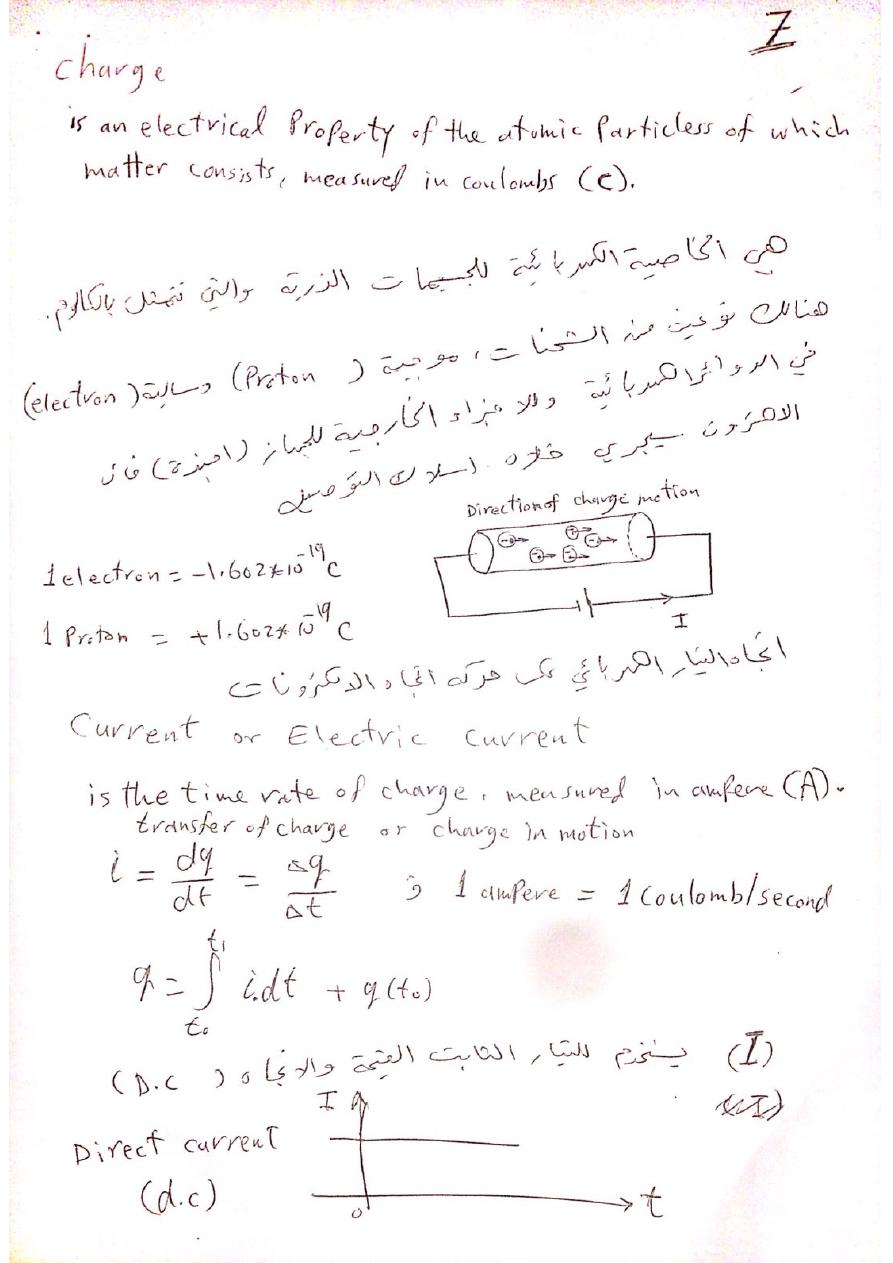 7
charge
is an electrical Property of the atomic Particless of which
matter consists, measured in coulombs (C).
هي الخاصية الكهربائية للجسيمات الذرية والتي تتمثل بالكلوم.
هنالك نوعين من الشحنات، موجبة (Proton) وسالبة (electron)
في الدوائر الكهربائية والاجزاء الخارجية للجهاز (اجهزة) فان
الالكترون سيجري خلال اسلاك التوصيل
Direction of charge motion
1 electron = -1.602*10^-19 C
1 Proton = +1.602*10^-19 C
I
اتجاه التيار الكهربائي عكس حركة اتجاه الالكترونات
Current or Electric current
is the time rate of charge, measured in ampere (A).
transfer of charge or charge in motion
i = dq/dt = Δq/Δt ; 1 ampere = 1 Coulomb/second
q = ∫_{t0}^{t1} i.dt + q(t0)
(I) يستخدم للتيار الثابت القيمة والاتجاه (D.C)
I
Direct current
(d.c)
0
t